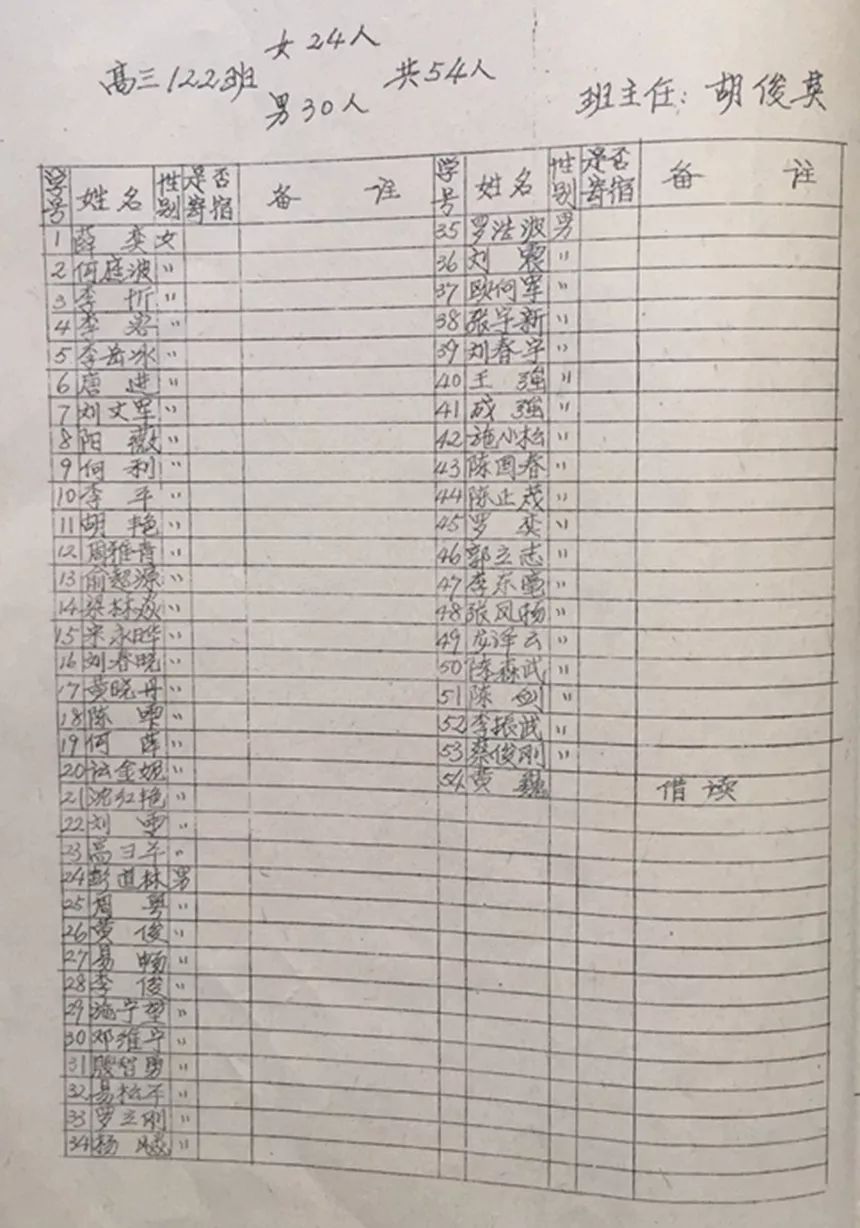 女24人
高三122班 共54人
男30人
班主任：胡俊英
学号 姓名 性别 是否寄宿 备注
1 薛奕 女
2 何庭波 〃
3 李忻 〃
4 李容 〃
5 李岳冰 〃
6 唐进 〃
7 刘文军 〃
8 阳薇 〃
9 何利 〃
10 李平 〃
11 胡艳 〃
12 周雅青 〃
13 俞超源 〃
14 梁林 〃
15 宋永晔 〃
16 刘春晓 〃
17 黄晓丹 〃
18 陈雪 〃
19 何薛 〃
20 金妮 〃
21 沈红艳 〃
22 刘雪 〃
23 高 〃
24 彭道林 男
25 周粤 〃
26 黄俊 〃
27 易畅 〃
28 李俊 〃
29 施宁望 〃
30 邓维宁 〃
31 殷智勇 〃
32 易松平 〃
33 罗立刚 〃
34 杨 〃
学号 姓名 性别 是否寄宿 备注
35 罗浩波 男
36 刘震 〃
37 欧何军 〃
38 张宇新 〃
39 刘春宇 〃
40 王强 〃
41 成强 〃
42 施小松 〃
43 陈国春 〃
44 陈正茂 〃
45 罗奕 〃
46 郭立志 〃
47 李东 〃
48 张凤扬 〃
49 龙泽云 〃
50 陈森武 〃
51 陈剑 〃
52 李振武 〃
53 蔡俊刚 〃
54 黄巍 借读